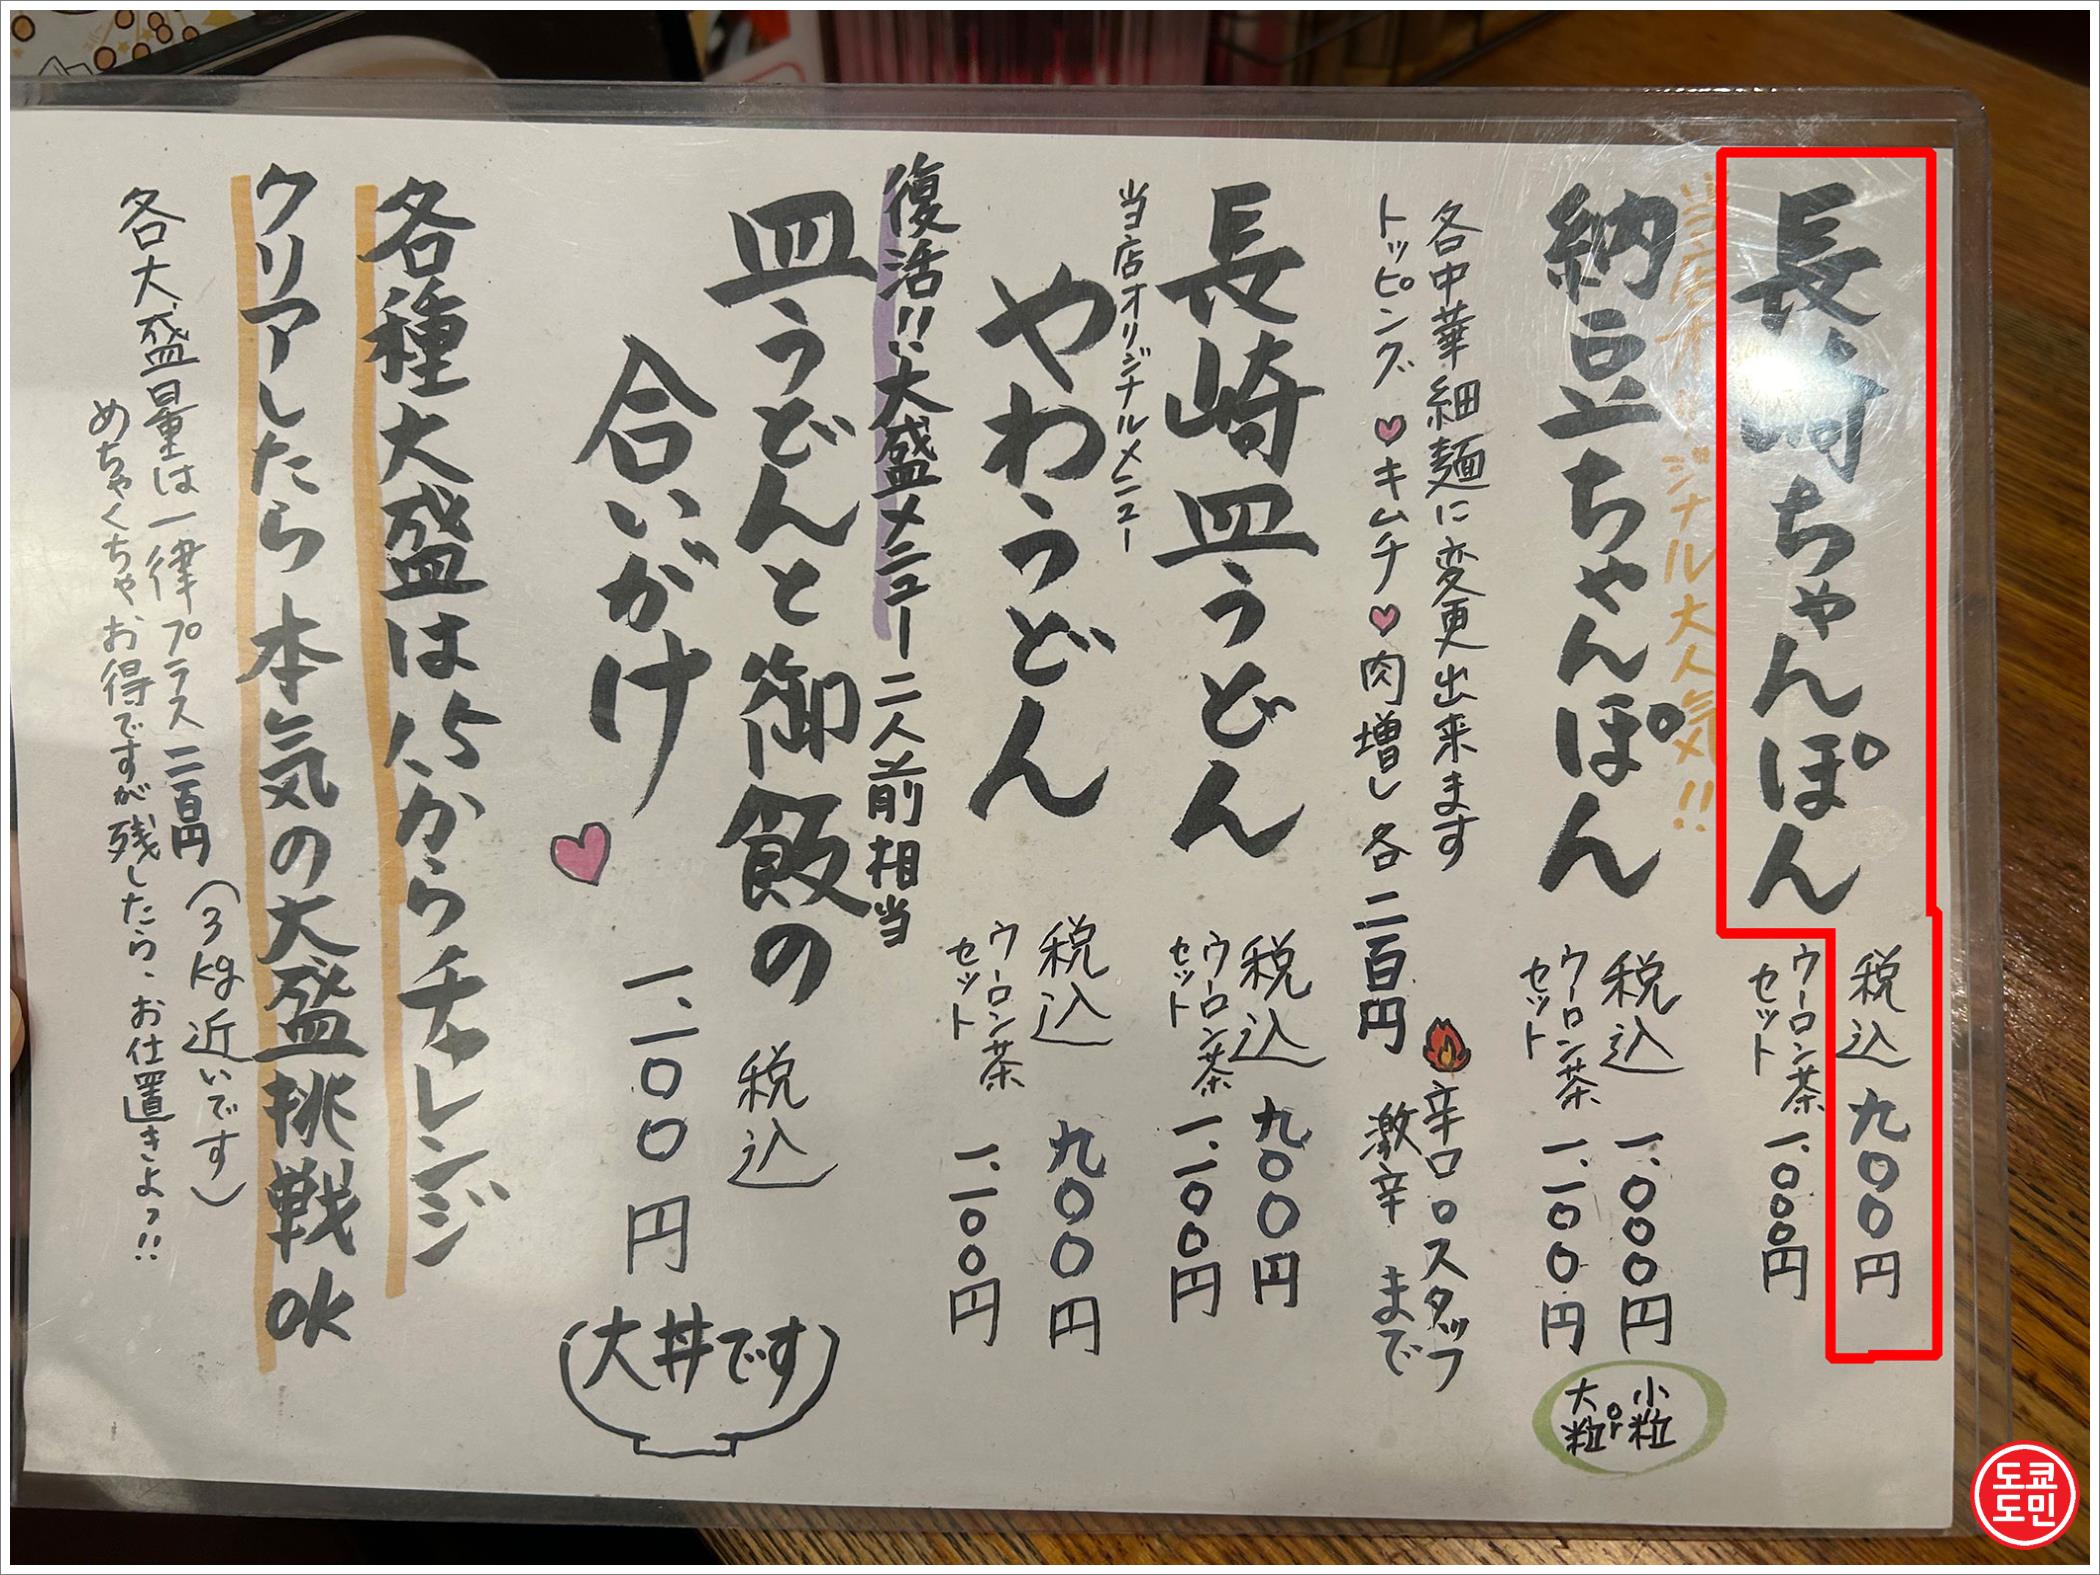 長崎ちゃんぽん
税込 九〇〇円
ウーロン茶セット 一、〇〇〇円
当店オリジナル大人気!!
納豆ちゃんぽん
税込 一、〇〇〇円
ウーロン茶セット 一、一〇〇円
小粒or大粒
各中華細麺に変更出来ます
トッピング ♥キムチ♥肉増し 各二百円
辛口ロスタッフ
激辛まで
長崎皿うどん
税込 九〇〇円
ウーロン茶セット 一、一〇〇円
当店オリジナルメニュー
やわうどん
税込 九〇〇円
ウーロン茶セット 一、一〇〇円
復活!!大盛メニュー 二人前相当
皿うどんと御飯の
合いがけ
税込
一、一〇〇円
(大丼です)
各種大盛は1.5からチャレンジ
クリアしたら本気の大盛挑戦OK
各大盛量は一律プラス二百円 (3kg近いです)
めちゃくちゃお得ですが残したら、お仕置きよっ!!
도쿄
도민